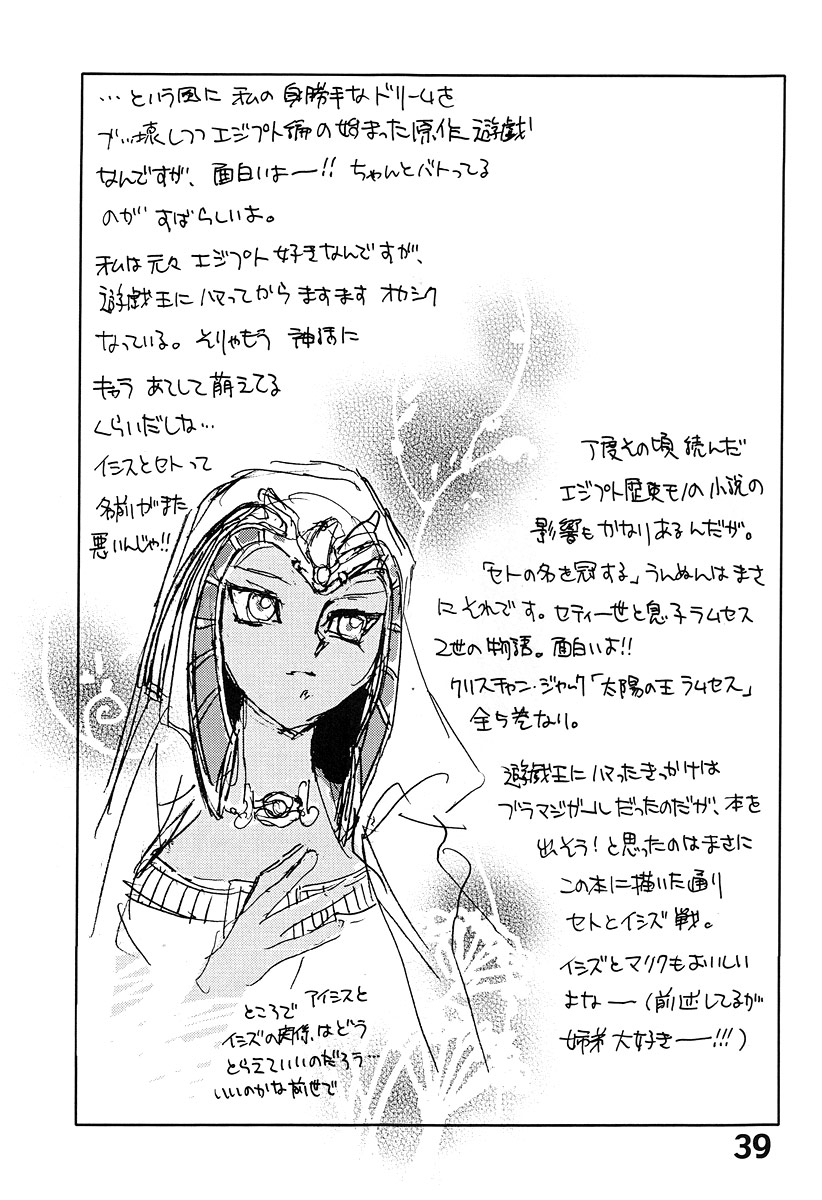 …という風に 私の 身勝手なドリームを
ブッ壊しつつ エジプト編の始まった原作遊戯
なんですが、面白いよー!! ちゃんとバトってる
のが すばらしいよ。
私は元々 エジプト好きなんですが、
遊戯王にハマってから ますます オカシク
なっている。そりゃもう 神話に
キャラ あてして萌えてる
くらいだしな…
イシスとセトって
名前がまた
悪いんじゃ!!
丁度その頃 読んだ
エジプト歴史モノの小説の
影響もかなりあるんだが。
「セトの名を冠する」うんぬんはまさ
にそれです。セティ一世と息子ラムセス
2世の物語。面白いよ!!
クリスチャン・ジャック「太陽の王 ラムセス」
全5巻なり。
遊戯王にハマったきっかけは
ブラマジガールだったのだが、本を
出そう!と思ったのはまさに
この本に描いた通り
セトとイシズ戦。
イシズとマリクもおいしい
よなー (前述してるが
姉弟大好きー!!!)
ところで アイシスと
イシズの関係はどう
とらえていいのだろう…
いいのかな前世で
39